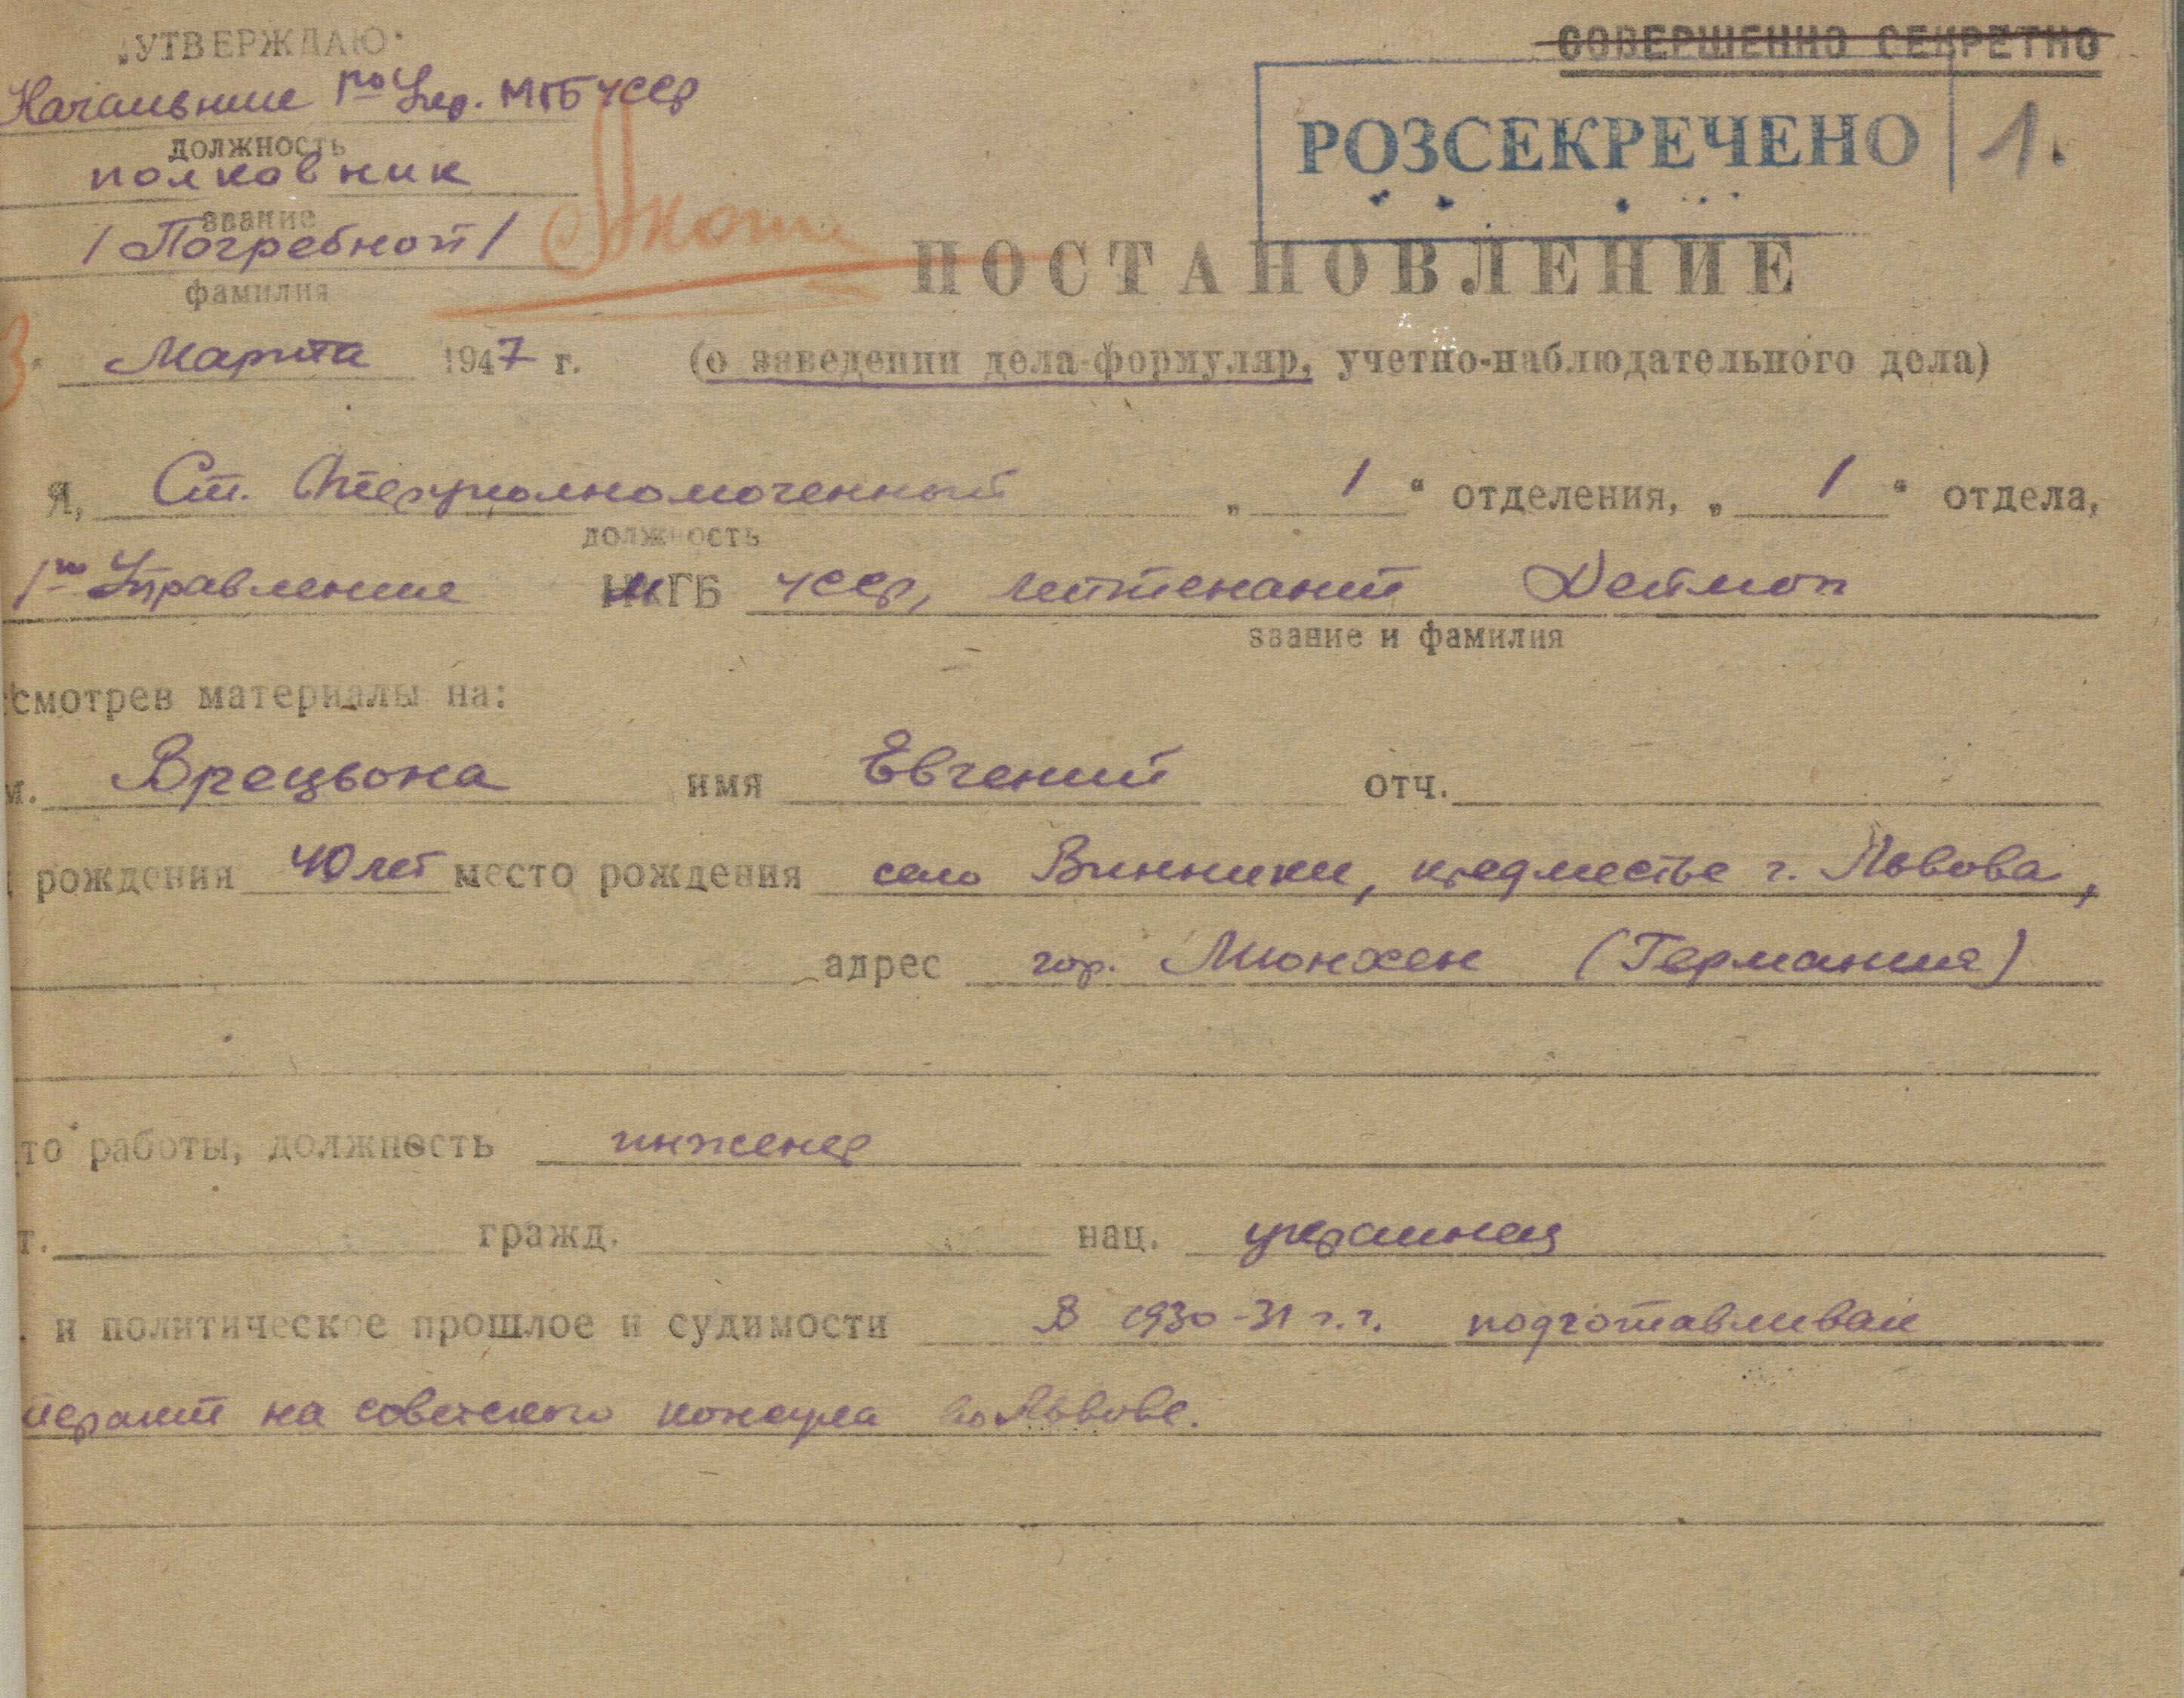 „УТВЕРЖДАЮ“
СОВЕРШЕННО СЕКРЕТНО
Начальник 1го Упр. МГБ УССР
должность
РОЗСЕКРЕЧЕНО 1.
полковник
звание
/Погребной/
фамилия
ПОСТАНОВЛЕНИЕ
Марта 1947 г. (о заведении дела-формуляр, учетно-наблюдательного дела)
Я, Ст. Оперуполномоченный „ 1 “ отделения, „ 1 “ отдела,
должность
1го Управления МГБ УССР, лейтенант
звание и фамилия
смотрев материалы на:
м. Врецьона имя Евгений отч.
рождения 40 лет место рождения село Винники, предместье г. Львова,
адрес гор. Мюнхен (Германия)
то работы, должность инженер
т. гражд. нац. украинец
. и политическое прошлое и судимости В 1930-31 г.г. подготавливал
теракт на советского консула во Львове.